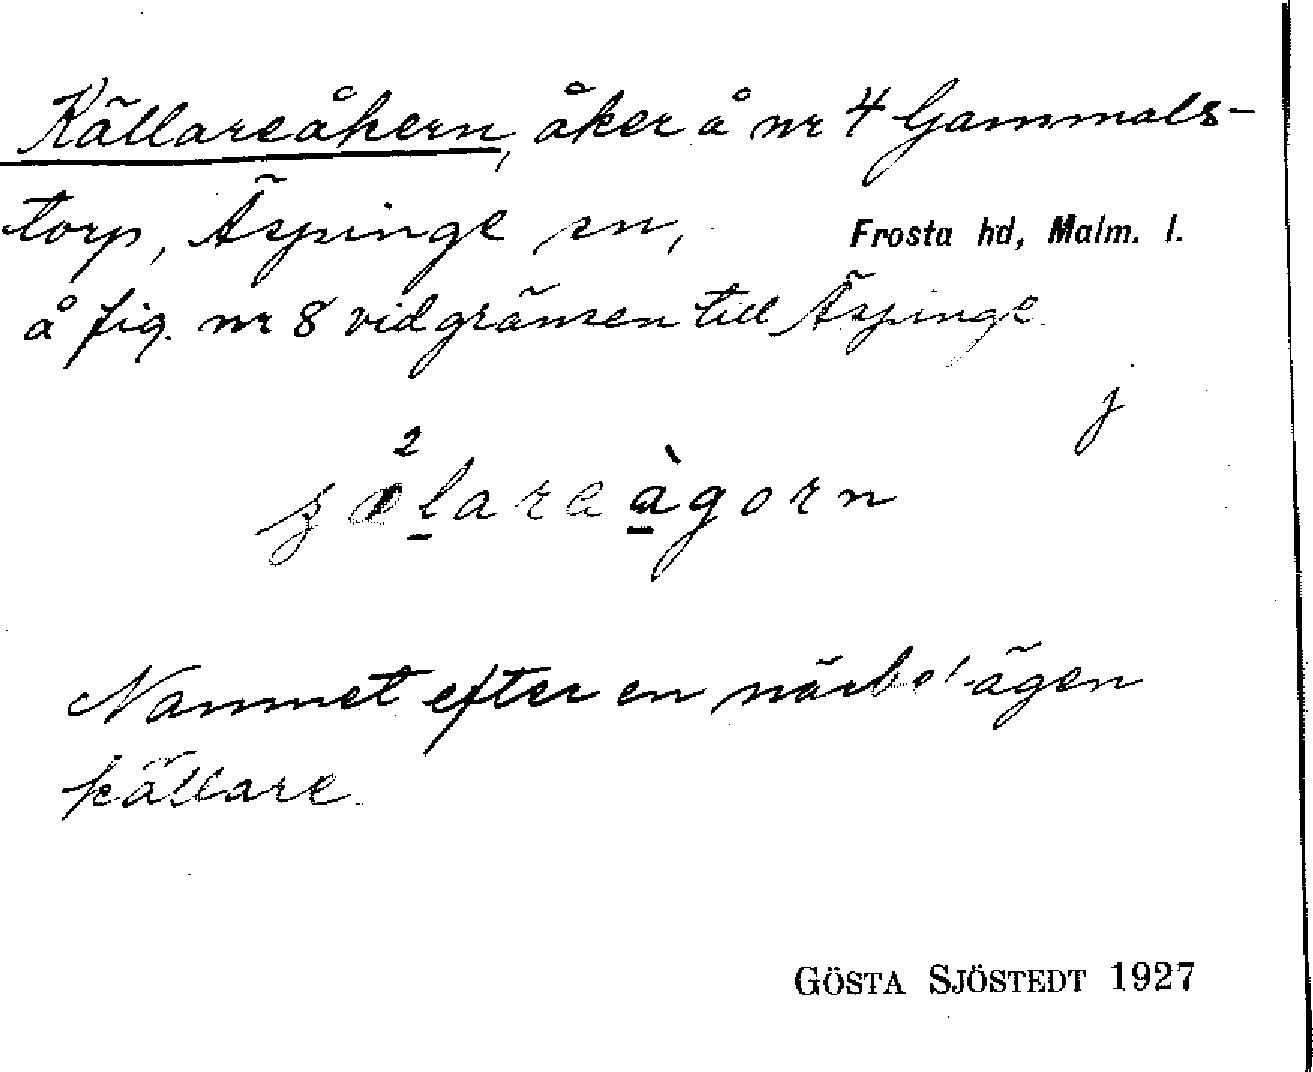 Källareåkern, åker å nr 4 Gammals-
torp, Äspinge sn, Frosta hd, Malm. l.
å fig. nr 8 vid gränsen till Äspinge.
j
Namnet efter en närbelägen
källare.
GÖSTA SJÖSTEDT 1927